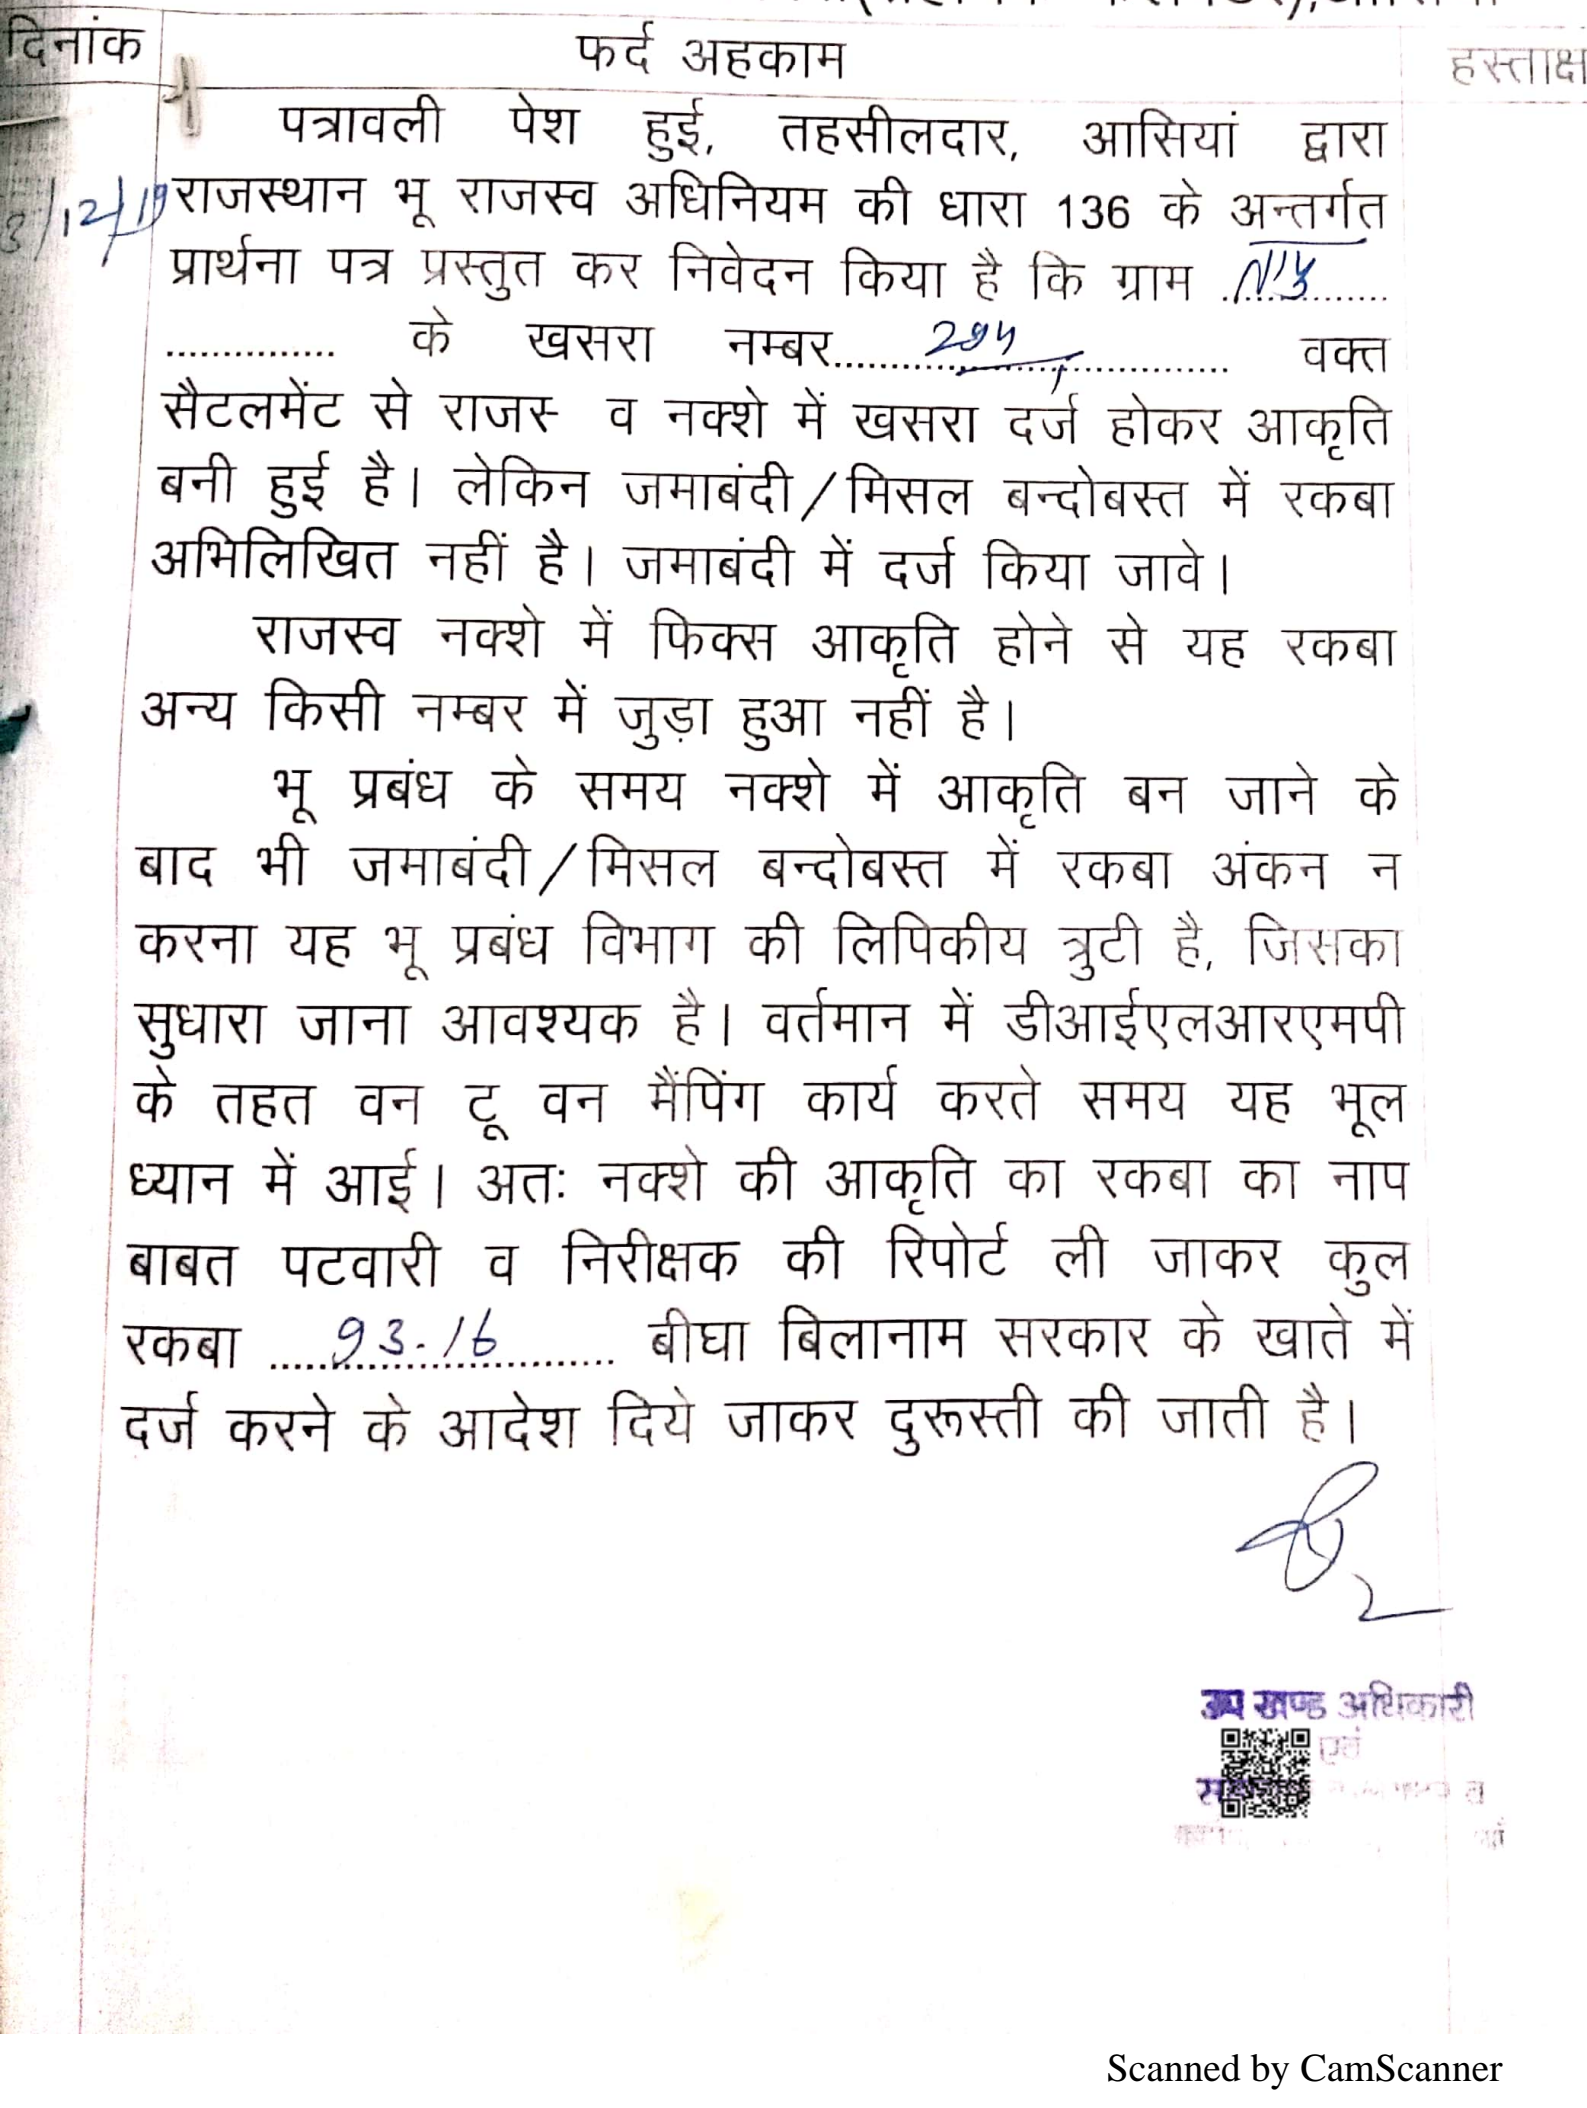 दिनांक
फर्द अहकाम
हस्ताक्ष
पत्रावली पेश हुई, तहसीलदार, आसियां द्वारा
12/19 राजस्थान भू राजस्व अधिनियम की धारा 136 के अन्तर्गत
प्रार्थना पत्र प्रस्तुत कर निवेदन किया है कि ग्राम ...............
............... के खसरा नम्बर.................................... वक्त
सैटलमेंट से राजस् व नक्शे में खसरा दर्ज होकर आकृति
बनी हुई है। लेकिन जमाबंदी/मिसल बन्दोबस्त में रकबा
अभिलिखित नहीं है। जमाबंदी में दर्ज किया जावे।
राजस्व नक्शे में फिक्स आकृति होने से यह रकबा
अन्य किसी नम्बर में जुड़ा हुआ नहीं है।
भू प्रबंध के समय नक्शे में आकृति बन जाने के
बाद भी जमाबंदी/मिसल बन्दोबस्त में रकबा अंकन न
करना यह भू प्रबंध विभाग की लिपिकीय त्रुटी है, जिसका
सुधारा जाना आवश्यक है। वर्तमान में डीआईएलआरएमपी
के तहत वन टू वन मैंपिंग कार्य करते समय यह भूल
ध्यान में आई। अतः नक्शे की आकृति का रकबा का नाप
बाबत पटवारी व निरीक्षक की रिपोर्ट ली जाकर कुल
रकबा 93.16 बीघा बिलानाम सरकार के खाते में
दर्ज करने के आदेश दिये जाकर दुरूस्ती की जाती है।
उप खण्ड अधिकारी
एवं
Scanned by CamScanner